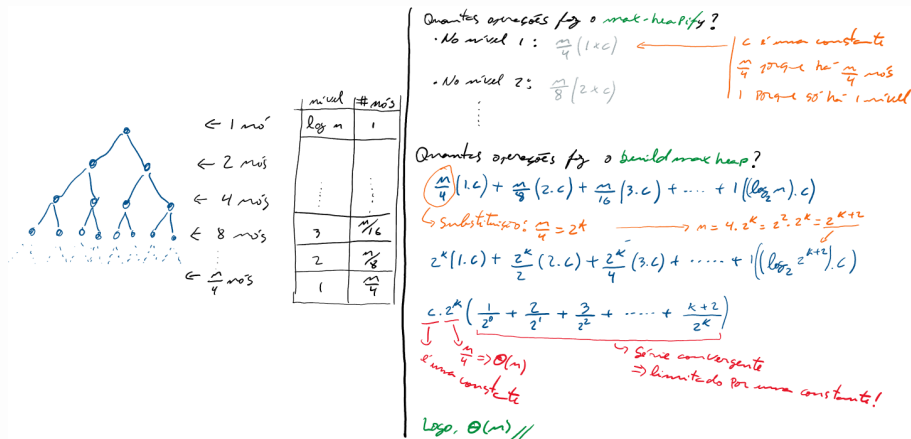 ← 1 nó
← 2 nós
← 4 nós
← 8 nós
⋮
← n/4 nós
nível | # nós
log n | 1
⋮ | ⋮
3 | n/16
2 | n/8
1 | n/4
Quantas operações faz o max-heapify?
· No nível 1: n/4 (1×c) ← c é uma constante
n/4 porque há n/4 nós
1 porque só há 1 nível
· No nível 2: n/8 (2×c)
⋮
Quantas operações faz o build max heap?
n/4 (1.c) + n/8 (2.c) + n/16 (3.c) + ..... + 1((log₂ n).c)
↳ substituição: n/4 = 2^k → n = 4.2^k = 2².2^k = 2^(k+2)
2^k (1.c) + 2^k/2 (2.c) + 2^k/4 (3.c) + ..... + 1((log₂ 2^(k+2)).c)
c.2^k (1/2⁰ + 2/2¹ + 3/2² + ..... + (k+2)/2^k)
é uma constante
n/4 => Θ(n)
↳ série convergente
=> limitado por uma constante!
Logo, Θ(n) //